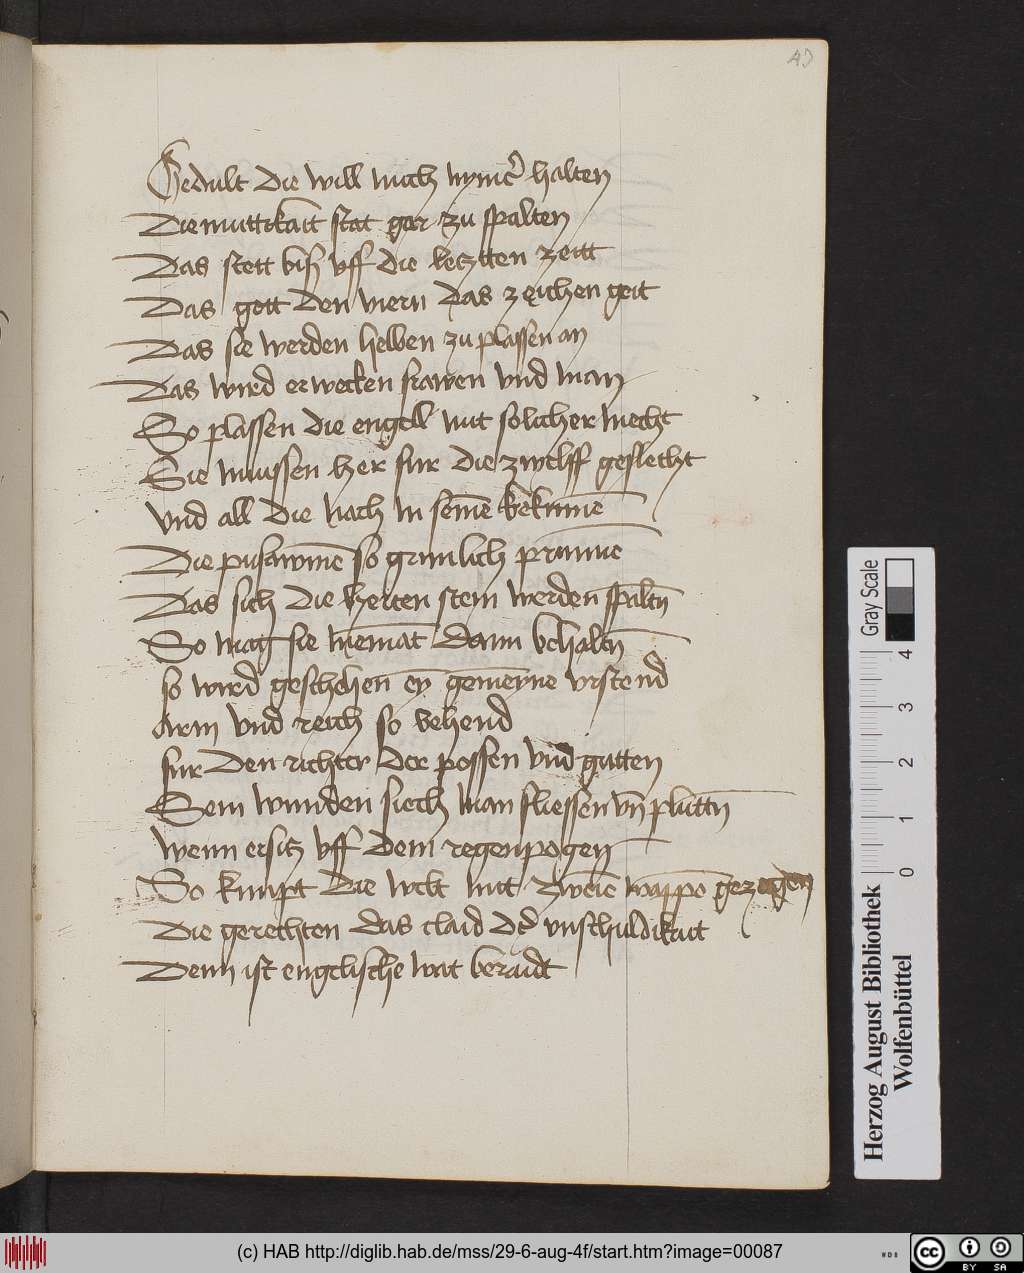 43
Gedult die will mich nymer halten
Diemuttikait stat gar zu spalten
Das stett biß vff die leczten zeitt
Das gott den viern das zeichen geit
Das sie werden heben zu plassen an
Das wird erwecken frawen vnd man
So plassen die engell mit solicher mecht
Sie mussen her fur die zwelff geslecht
vnd all die nach in seine kumē
Die pusawmē so grimlich prūme
Das sich die herten stein werden spaltn̄
So mag sie niemāt dann behaltn̄
so wird geschehen ey gemeyne vrstend
Arm vnd reich so behend
fur den richter der possen vnd gutten
Sein wunden siech man fliessen vn̄ plutn̄
wenn er sitz vff dem regenpogen
So kumpt die welt mit zweiē wappē gezogen
Die gerechten das claid der vnschuldikait
Denn ist englische wat beraidt
Gray Scale
4
3
2
1
0
Herzog August Bibliothek
Wolfenbüttel
(c) HAB http://diglib.hab.de/mss/29-6-aug-4f/start.htm?image=00087
cc BY SA